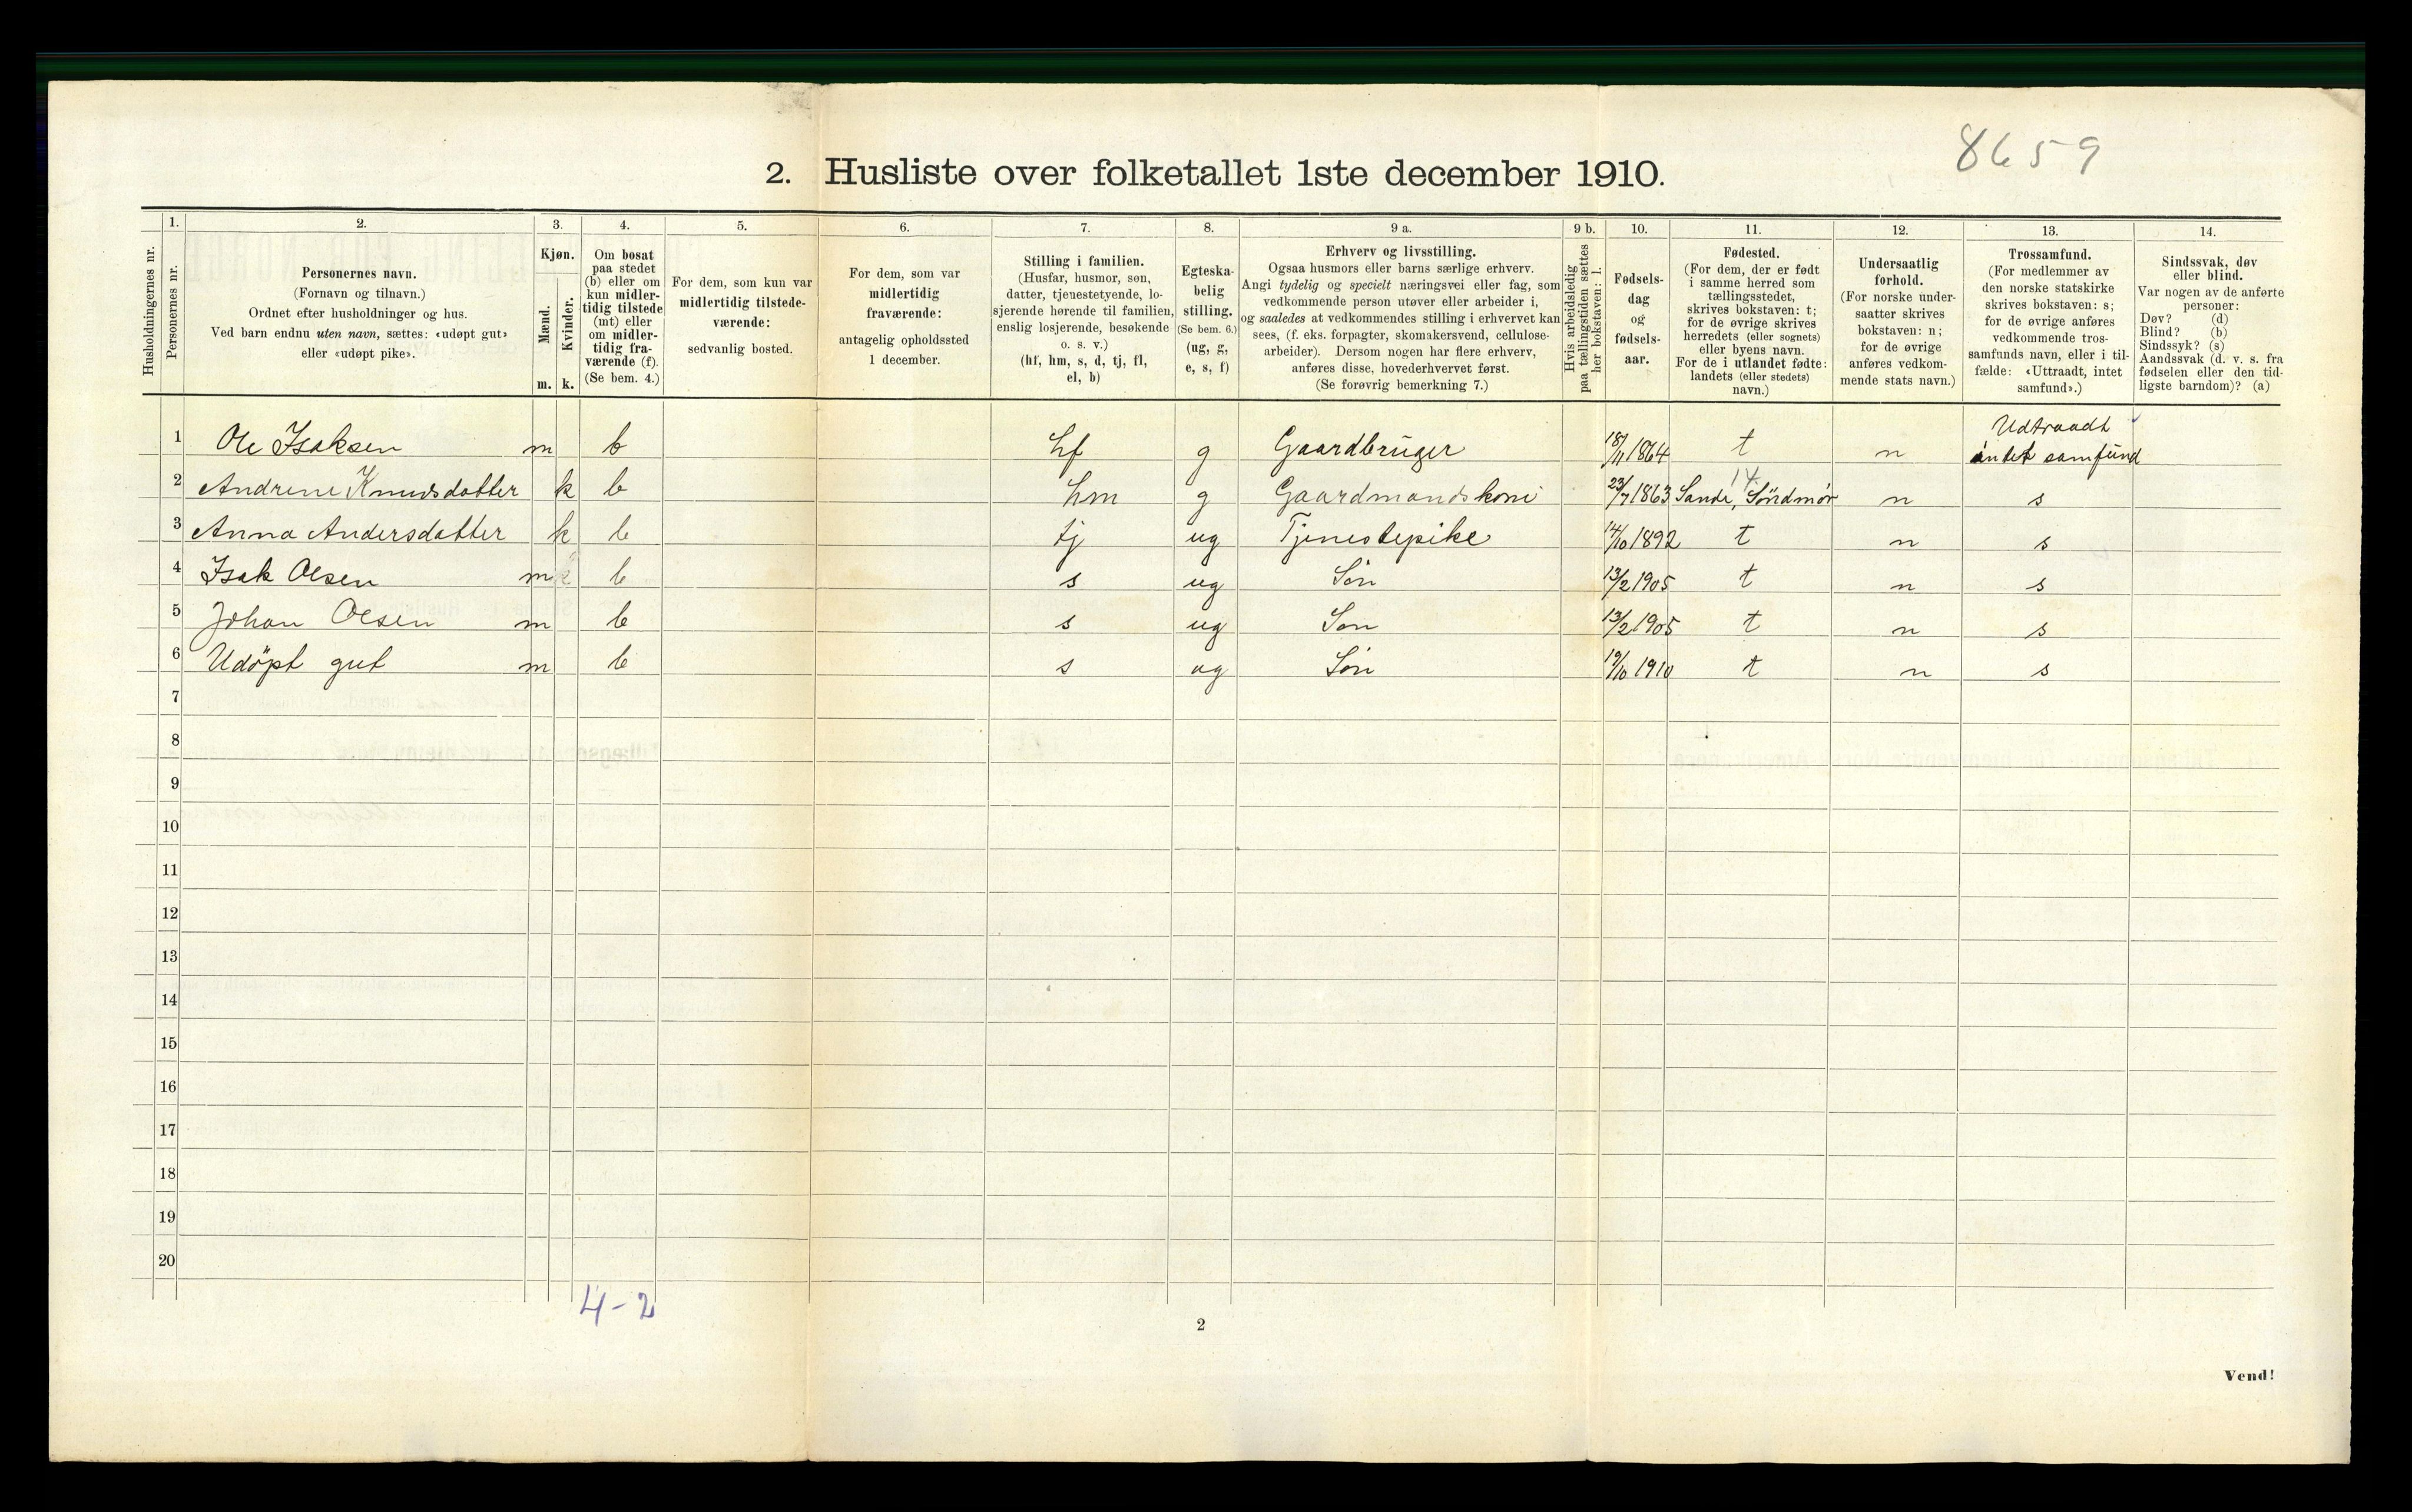 8659
2. Husliste over folketallet 1ste december 1910.
Husholdningernes nr.
1.
Personernes nr.
2.
Personernes navn.
(Fornavn og tilnavn.)
Ordnet efter husholdninger og hus.
Ved barn endnu uten navn, sættes: «udøpt gut»
eller «udøpt pike».
3.
Kjøn.
Mænd.
Kvinder.
m. k.
4.
Om bosat
paa stedet
(b) eller om
kun midler-
tidig tilstede
(mt) eller
om midler-
tidig fra-
værende (f).
(Se bem. 4.)
5.
For dem, som kun var
midlertidig tilstede-
værende:
sedvanlig bosted.
6.
For dem, som var
midlertidig
fraværende:
antagelig opholdssted
1 december.
7.
Stilling i familien.
(Husfar, husmor, søn,
datter, tjenestetyende, lo-
sjerende hørende til familien,
enslig losjerende, besøkende
o. s. v.)
(hf, hm, s, d, tj, fl,
el, b)
8.
Egteska-
belig
stilling.
(Se bem. 6.)
(ug, g,
e, s, f)
9 a.
Erhverv og livsstilling.
Ogsaa husmors eller barns særlige erhverv.
Angi tydelig og specielt næringsvei eller fag, som
vedkommende person utøver eller arbeider i,
og saaledes at vedkommendes stilling i erhvervet kan
sees, (f. eks. forpagter, skomakersvend, cellulose-
arbeider). Dersom nogen har flere erhverv,
anføres disse, hovederhvervet først.
(Se forøvrig bemerkning 7.)
9 b.
Hvis arbeidsledig
paa tællingstiden sættes
her bokstaven: l.
10.
Fødsels-
dag
og
fødsels-
aar.
11.
Fødested.
(For dem, der er født
i samme herred som
tællingsstedet,
skrives bokstaven: t;
for de øvrige skrives
herredets (eller sognets)
eller byens navn.
For de i utlandet fødte:
landets (eller stedets)
navn.)
12.
Undersaatlig
forhold.
(For norske under-
saatter skrives
bokstaven: n;
for de øvrige
anføres vedkom-
mende stats navn.)
13.
Trossamfund.
(For medlemmer av
den norske statskirke
skrives bokstaven: s;
for de øvrige anføres
vedkommende tros-
samfunds navn, eller i til-
fælde: «Uttraadt, intet
samfund».)
14.
Sindssvak, døv
eller blind.
Var nogen av de anførte
personer:
Døv? (d)
Blind? (b)
Sindssyk? (s)
Aandssvak (d. v. s. fra
fødselen eller den tid-
ligste barndom)? (a)
1 Ole Isaksen m b hf g Gaardbruger 18/11 1864 t n Udtraadt intet samfund
14
2 Andrene Knudsdatter k b hm g Gaardmandskone 23/7 1863 Sande, Söndmör n s
3 Anna Andersdatter k b tj ug Tjenestepike 14/10 1892 t n s
4 Isak Olsen m b s ug Sön 13/2 1905 t n s
5 Johan Olsen m b s ug Sön 13/2 1905 t n s
6 Udöpt gut m b s ug Sön 19/10 1910 t n s
7
8
9
10
11
12
13
14
15
16
17
18
19
20
4-2
2
Vend!